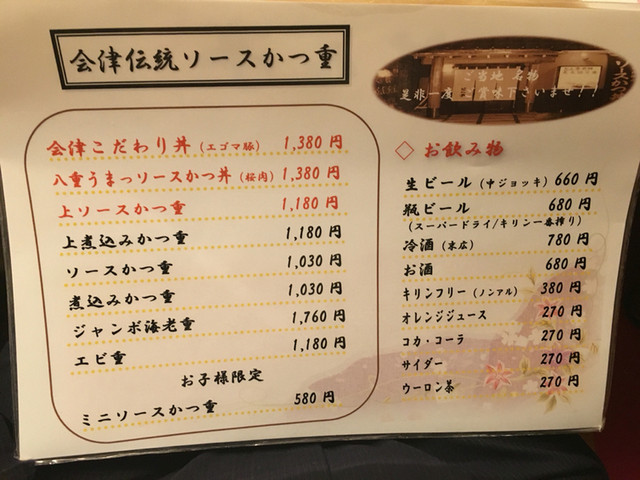 会津伝統ソースかつ重
ご当地 名物
是非一度 ご賞味下さいませ!!
会津こだわり丼(エゴマ豚) 1,380円
八重うまっソースかつ丼(桜肉) 1,380円
上ソースかつ重 1,180円
上煮込みかつ重 1,180円
ソースかつ重 1,030円
煮込みかつ重 1,030円
ジャンボ海老重 1,760円
エビ重 1,180円
お子様限定
ミニソースかつ重 580円
◇ お飲み物
生ビール(中ジョッキ) 660円
瓶ビール 680円
(スーパードライ/キリン一番搾り)
冷酒(末広) 780円
お酒 680円
キリンフリー(ノンアル) 380円
オレンジジュース 270円
コカ・コーラ 270円
サイダー 270円
ウーロン茶 270円